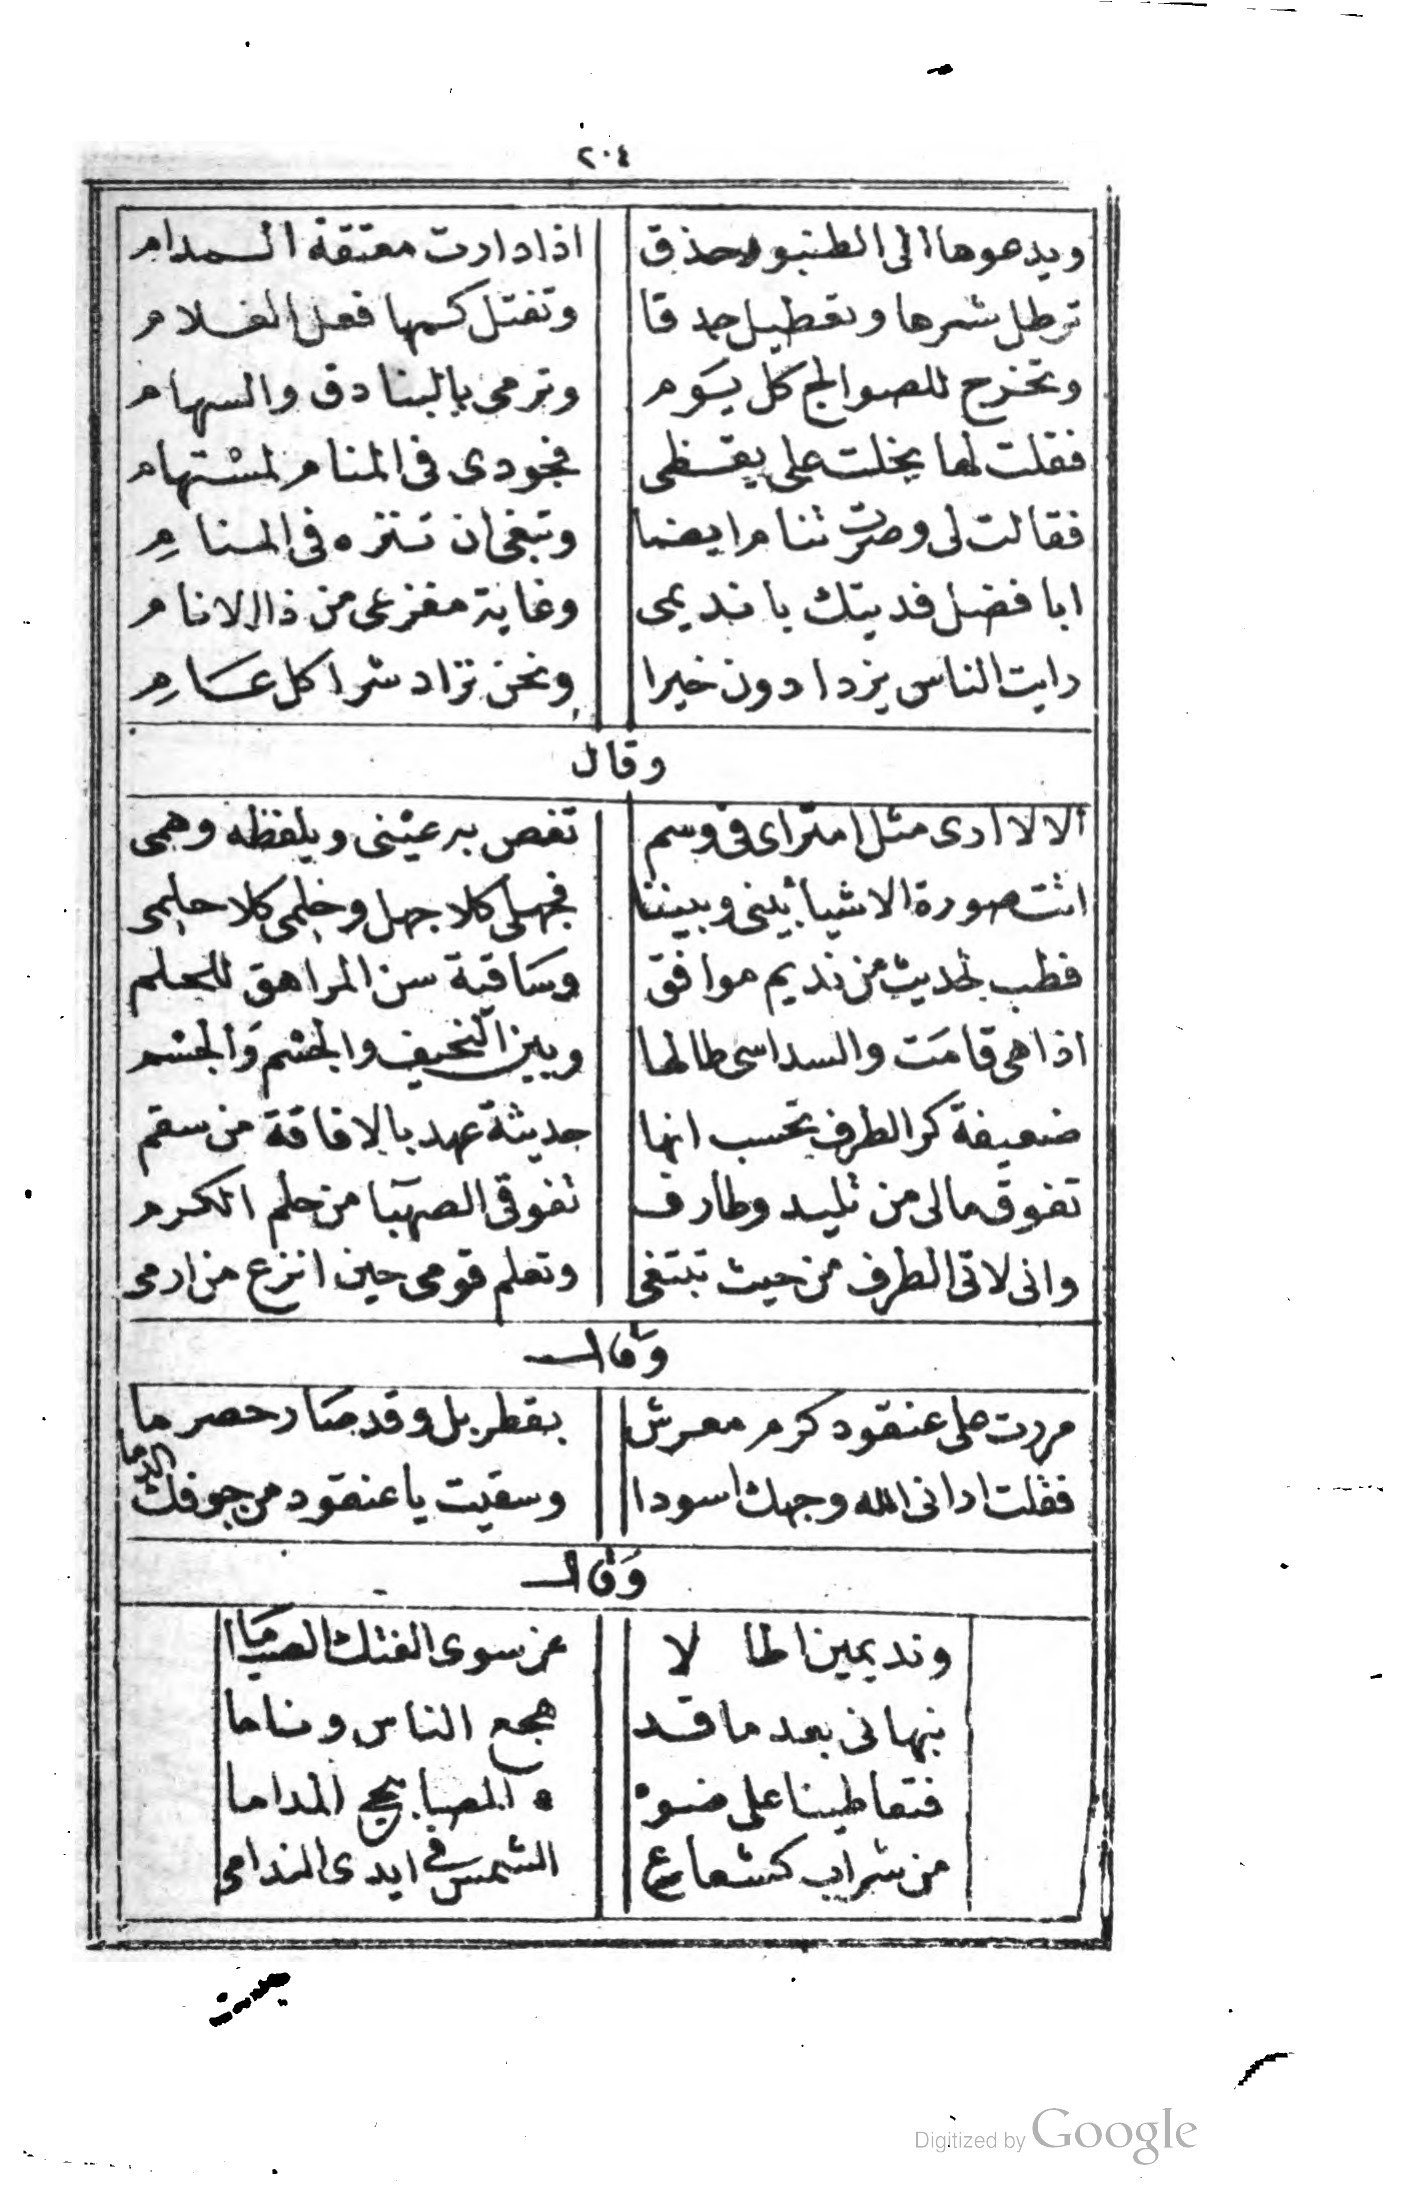 ٢٠٤
ويدعوها الى الطنبور حذق اذا دارت معتقة المدام
ترطل شعرها وتعطيل صدقا وتفتل كمها فعل الغلام
وتخرج للصوالج كل يوم وترمى بالبنادق والسهام
فقلت لها بخلت على يقظى فجودى فى المنام لمستهام
فقالت لى وصرت تنام ايضا وتبغى ان تنزه فى المنام
ابا فضل فديتك يا نديمى وغاية مفزعى من ذا الانام
رايت الناس يزدادون خيرا ونحن نزاد شرا كل عام
وقال
الا لا ارى مثل امتراى فى وسم تغص به عينى ويلفظه وهمى
اتت صورة الاشيا بينى وبيننا فجهلى كلا جهل وحلمى كلا حلمى
فطب بحديث من نديم موافق وساقية سن المراهق للحلم
اذا هى قامت والسداسى طالها وبين النحيف والجسم والجسم
ضعيفة كر الطرف تحسب انها حديثة عهد بالافاقة من سقم
تفوق مالى من تليد وطارف تفوقى الصهبا من حلم الكرم
وانى لاتى الطرف من حيث تبتغى وتعلم قومى حين انزع من ارمى
وقال
مررت على عنقود كرم معرش بقطربل وقد صار حصرما
فقلت ارانى الله وجهك اسودا وسقيت يا عنقود من جوفك الدما
وقال
ونديمين اطا لا عن سوى الفتك الصياما
نبهانى بعد ما قد هجع الناس وناما
فتعاطينا على ضوء ه المصابيح المداما
من شراب كشعاع الشمس فى ايدى الندامى
Digitized by Google